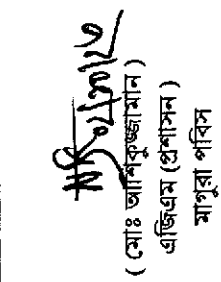 ( মোঃ আশিকুজ্জামান )
এজিএম (প্রশাসন )
মাগুরা পবিস